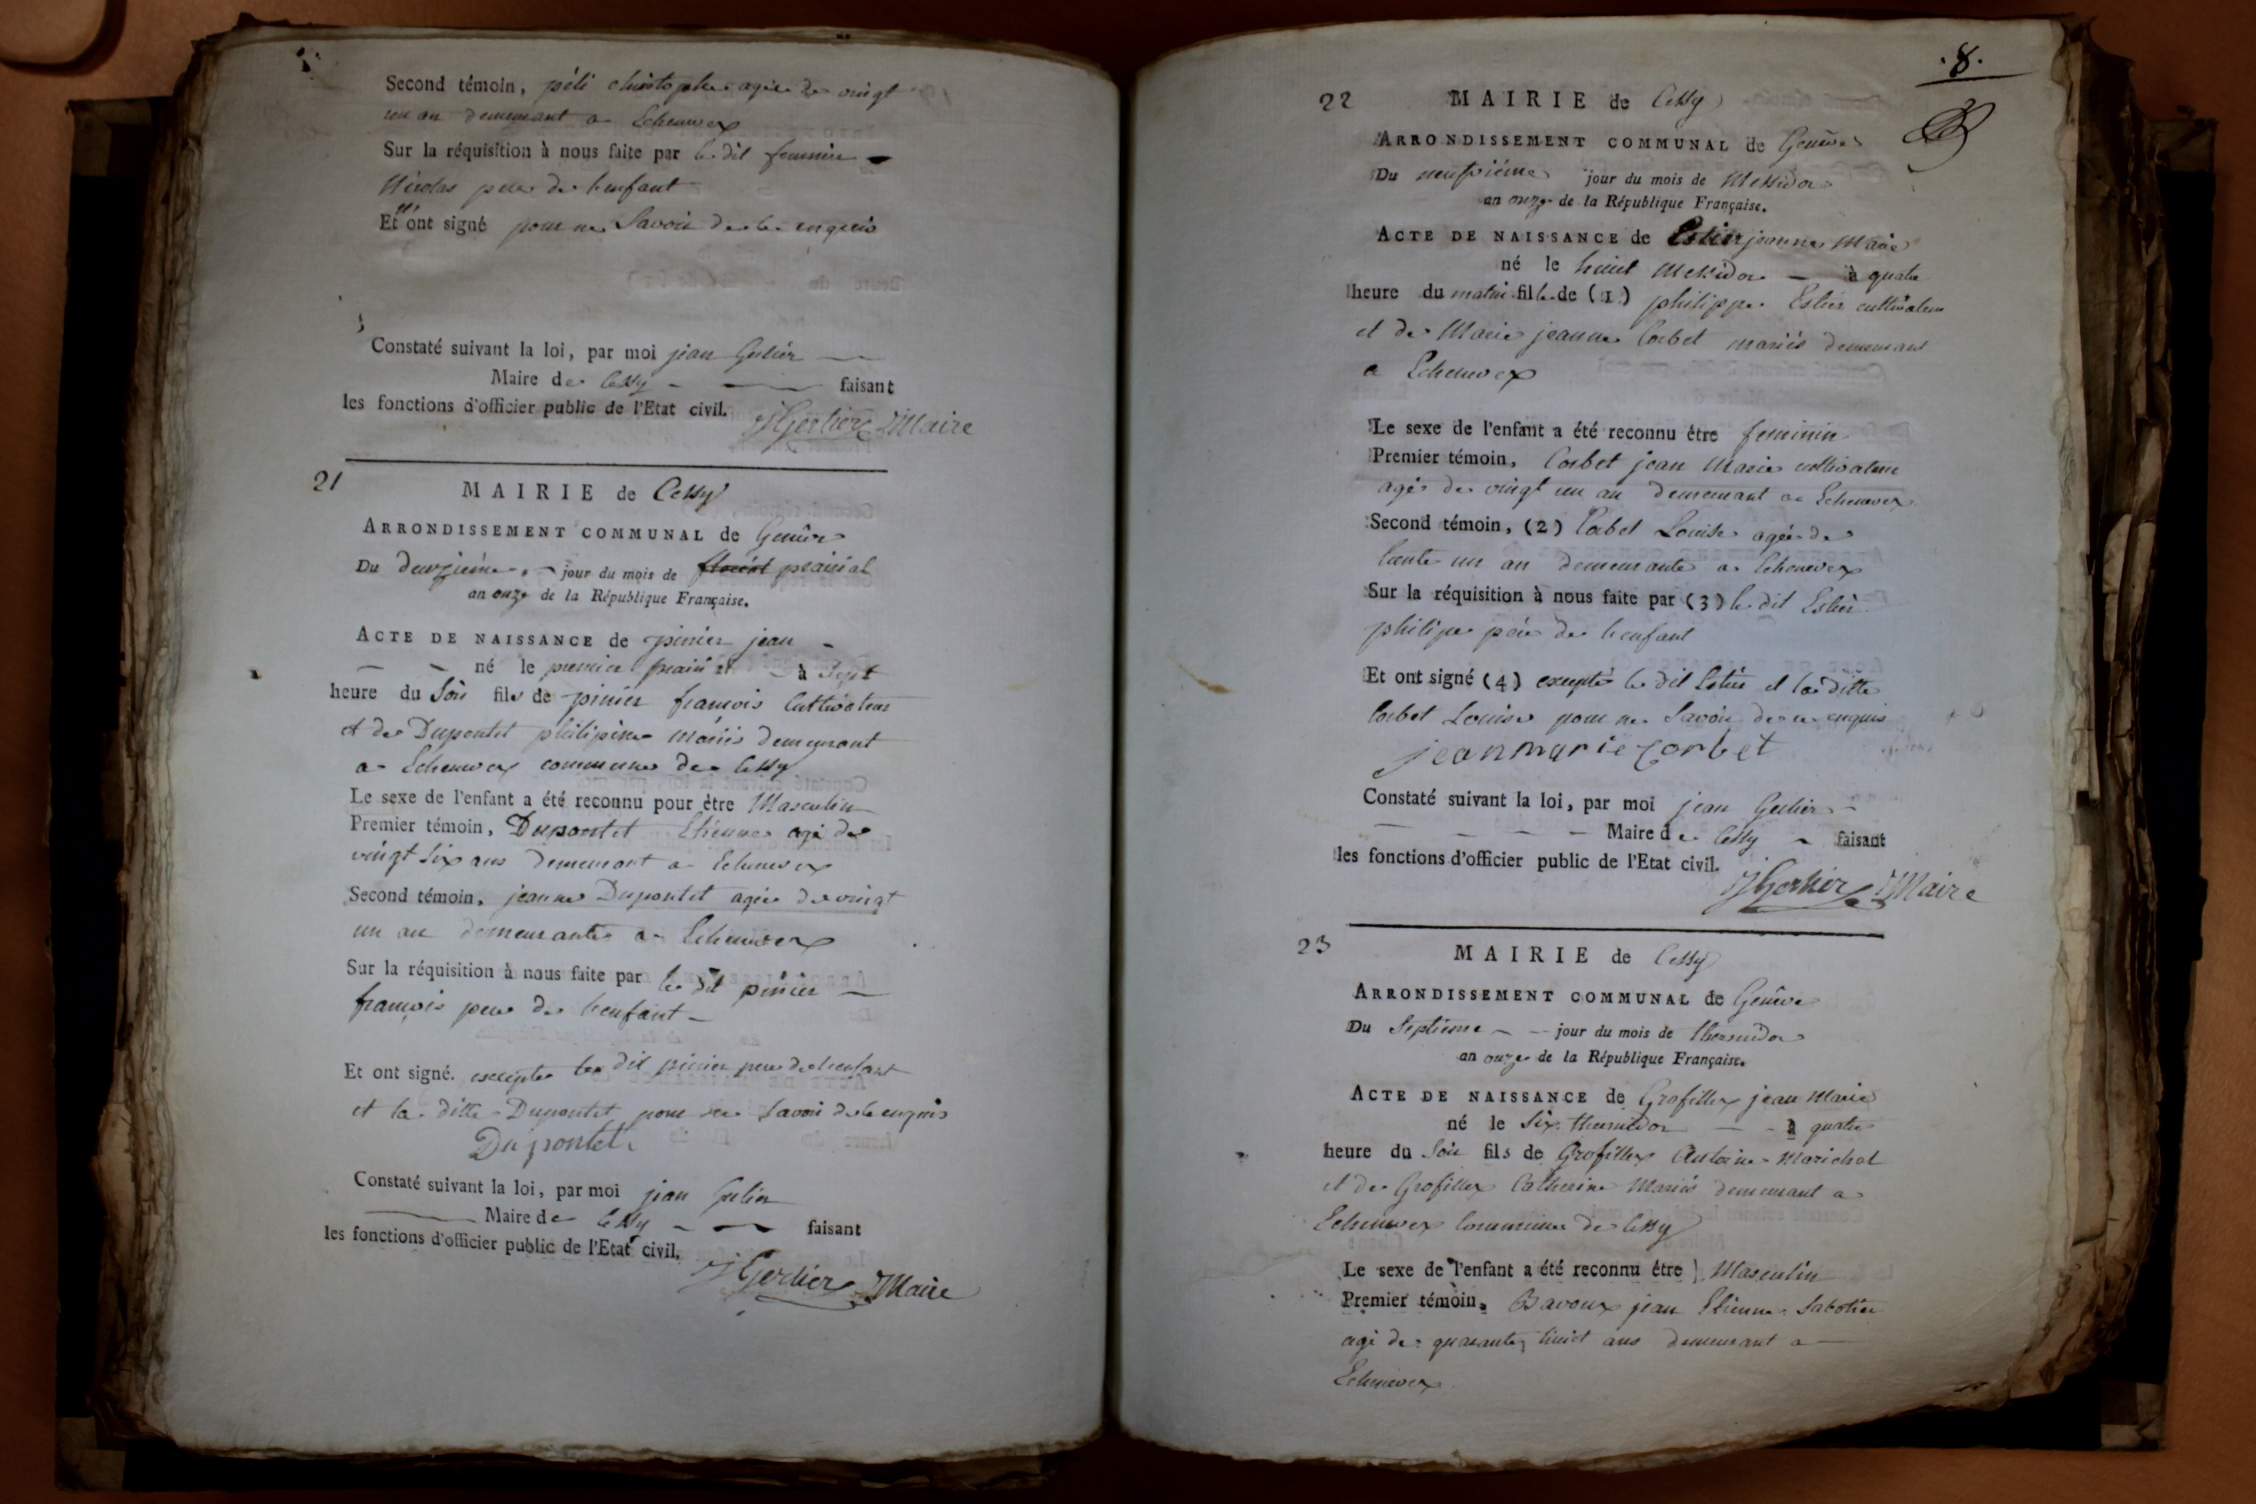 Second témoin, péli christophe agée de vingt
un an demeurant a Echenevex
Sur la réquisition à nous faite par le dit
Nicolas pere de lenfant
Et ont signé pour ne Savoir de ce enquis
Constaté suivant la loi, par moi jean Gerlier
Maire de Cessy faisant
les fonctions d'officier public de l'Etat civil.
JGerlier Maire
21
MAIRIE de Cessy
ARRONDISSEMENT COMMUNAL de Genêve
Du deuxzième jour du mois de floréal prairial
an onze de la République Française.
ACTE DE NAISSANCE de pinier jean
né le premier prairial à Sept
heure du Soir fils de pinier francois Cultivateur
et de Dupontet philipine mariés demeurant
a Echenevex commune de Cessy
Le sexe de l'enfant a été reconnu pour être Masculin
Premier témoin, Dupontet Etienne agé de
vingt six ans demeurant a Echenevex
Second témoin, jeanne Dupontet agée de vingt
un an demeurante a Echenevex
Sur la réquisition à nous faite par le dit pinier
francois pere de lenfant
Et ont signé. excepte le dit pinier pere de lenfant
et la ditte Dupontet pour ne Savoir de ce enquis
Dupontet
Constaté suivant la loi, par moi jean Gerlier
Maire de Cessy faisant
les fonctions d'officier public de l'Etat civil.
JGerlier Maire
.8.
22
MAIRIE de Cessy
ARRONDISSEMENT COMMUNAL de Genêve
Du neufvième jour du mois de Messidor
an onze de la République Française.
ACTE DE NAISSANCE de Estier jeanne Marie
né le huit Messidor à quatre
heure du matin fille de (1) philippe Estier cultivateur
et de Marie jeanne Corbet mariés demeurant
a Echenevex
Le sexe de l'enfant a été reconnu être feminin
Premier témoin, Corbet jean Marie cultivateur
agé de vingt un an demeurant a Echenevex
Second témoin, (2) Corbet Louise agée de
trente un an demeurante a Echenevex
Sur la réquisition à nous faite par (3) le dit Estier
philipe père de lenfant
Et ont signé (4) excepté le dit Estier et la ditte
Corbet Louise pour ne Savoir de ce enquis
jeanmarie corbet
Constaté suivant la loi, par moi jean Gerlier
Maire de Cessy faisant
les fonctions d'officier public de l'Etat civil.
JGerlier Maire
23
MAIRIE de Cessy
ARRONDISSEMENT COMMUNAL de Genêve
Du Septieme jour du mois de thermidor
an onze de la République Française.
ACTE DE NAISSANCE de Grofillex jean Marie
né le Six thermidor à quatre
heure du Soir fils de Grofillex Antoine Marichal
et de Grofillex Catherine Mariés demeurant a
Echenevex Commune de Cessy
Le sexe de l'enfant a été reconnu être Masculin
Premier témoin, Bavoux jean Etienne Sabotier
agé de quarante huit ans demeurant a
Echenevex